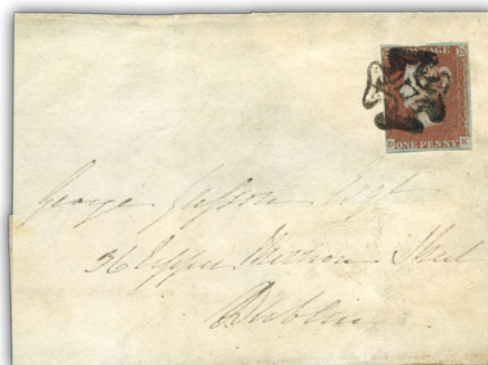 POSTAGE
ONE PENNY
George
36 Upper Merrion Street
Dublin